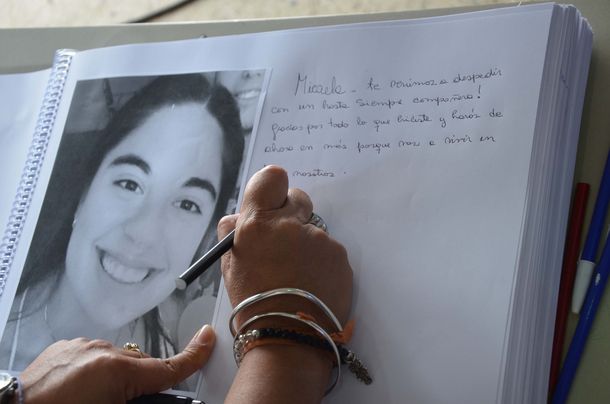 Micaela - te venimos a despedir
con un hasta siempre compañera!
Gracias por todo lo que hiciste y harás de
ahora en más porque vas a vivir en
nosotros.